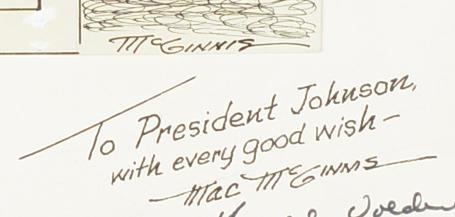 McGINNIS
To President Johnson,
with every good wish—
Mac McGinnis